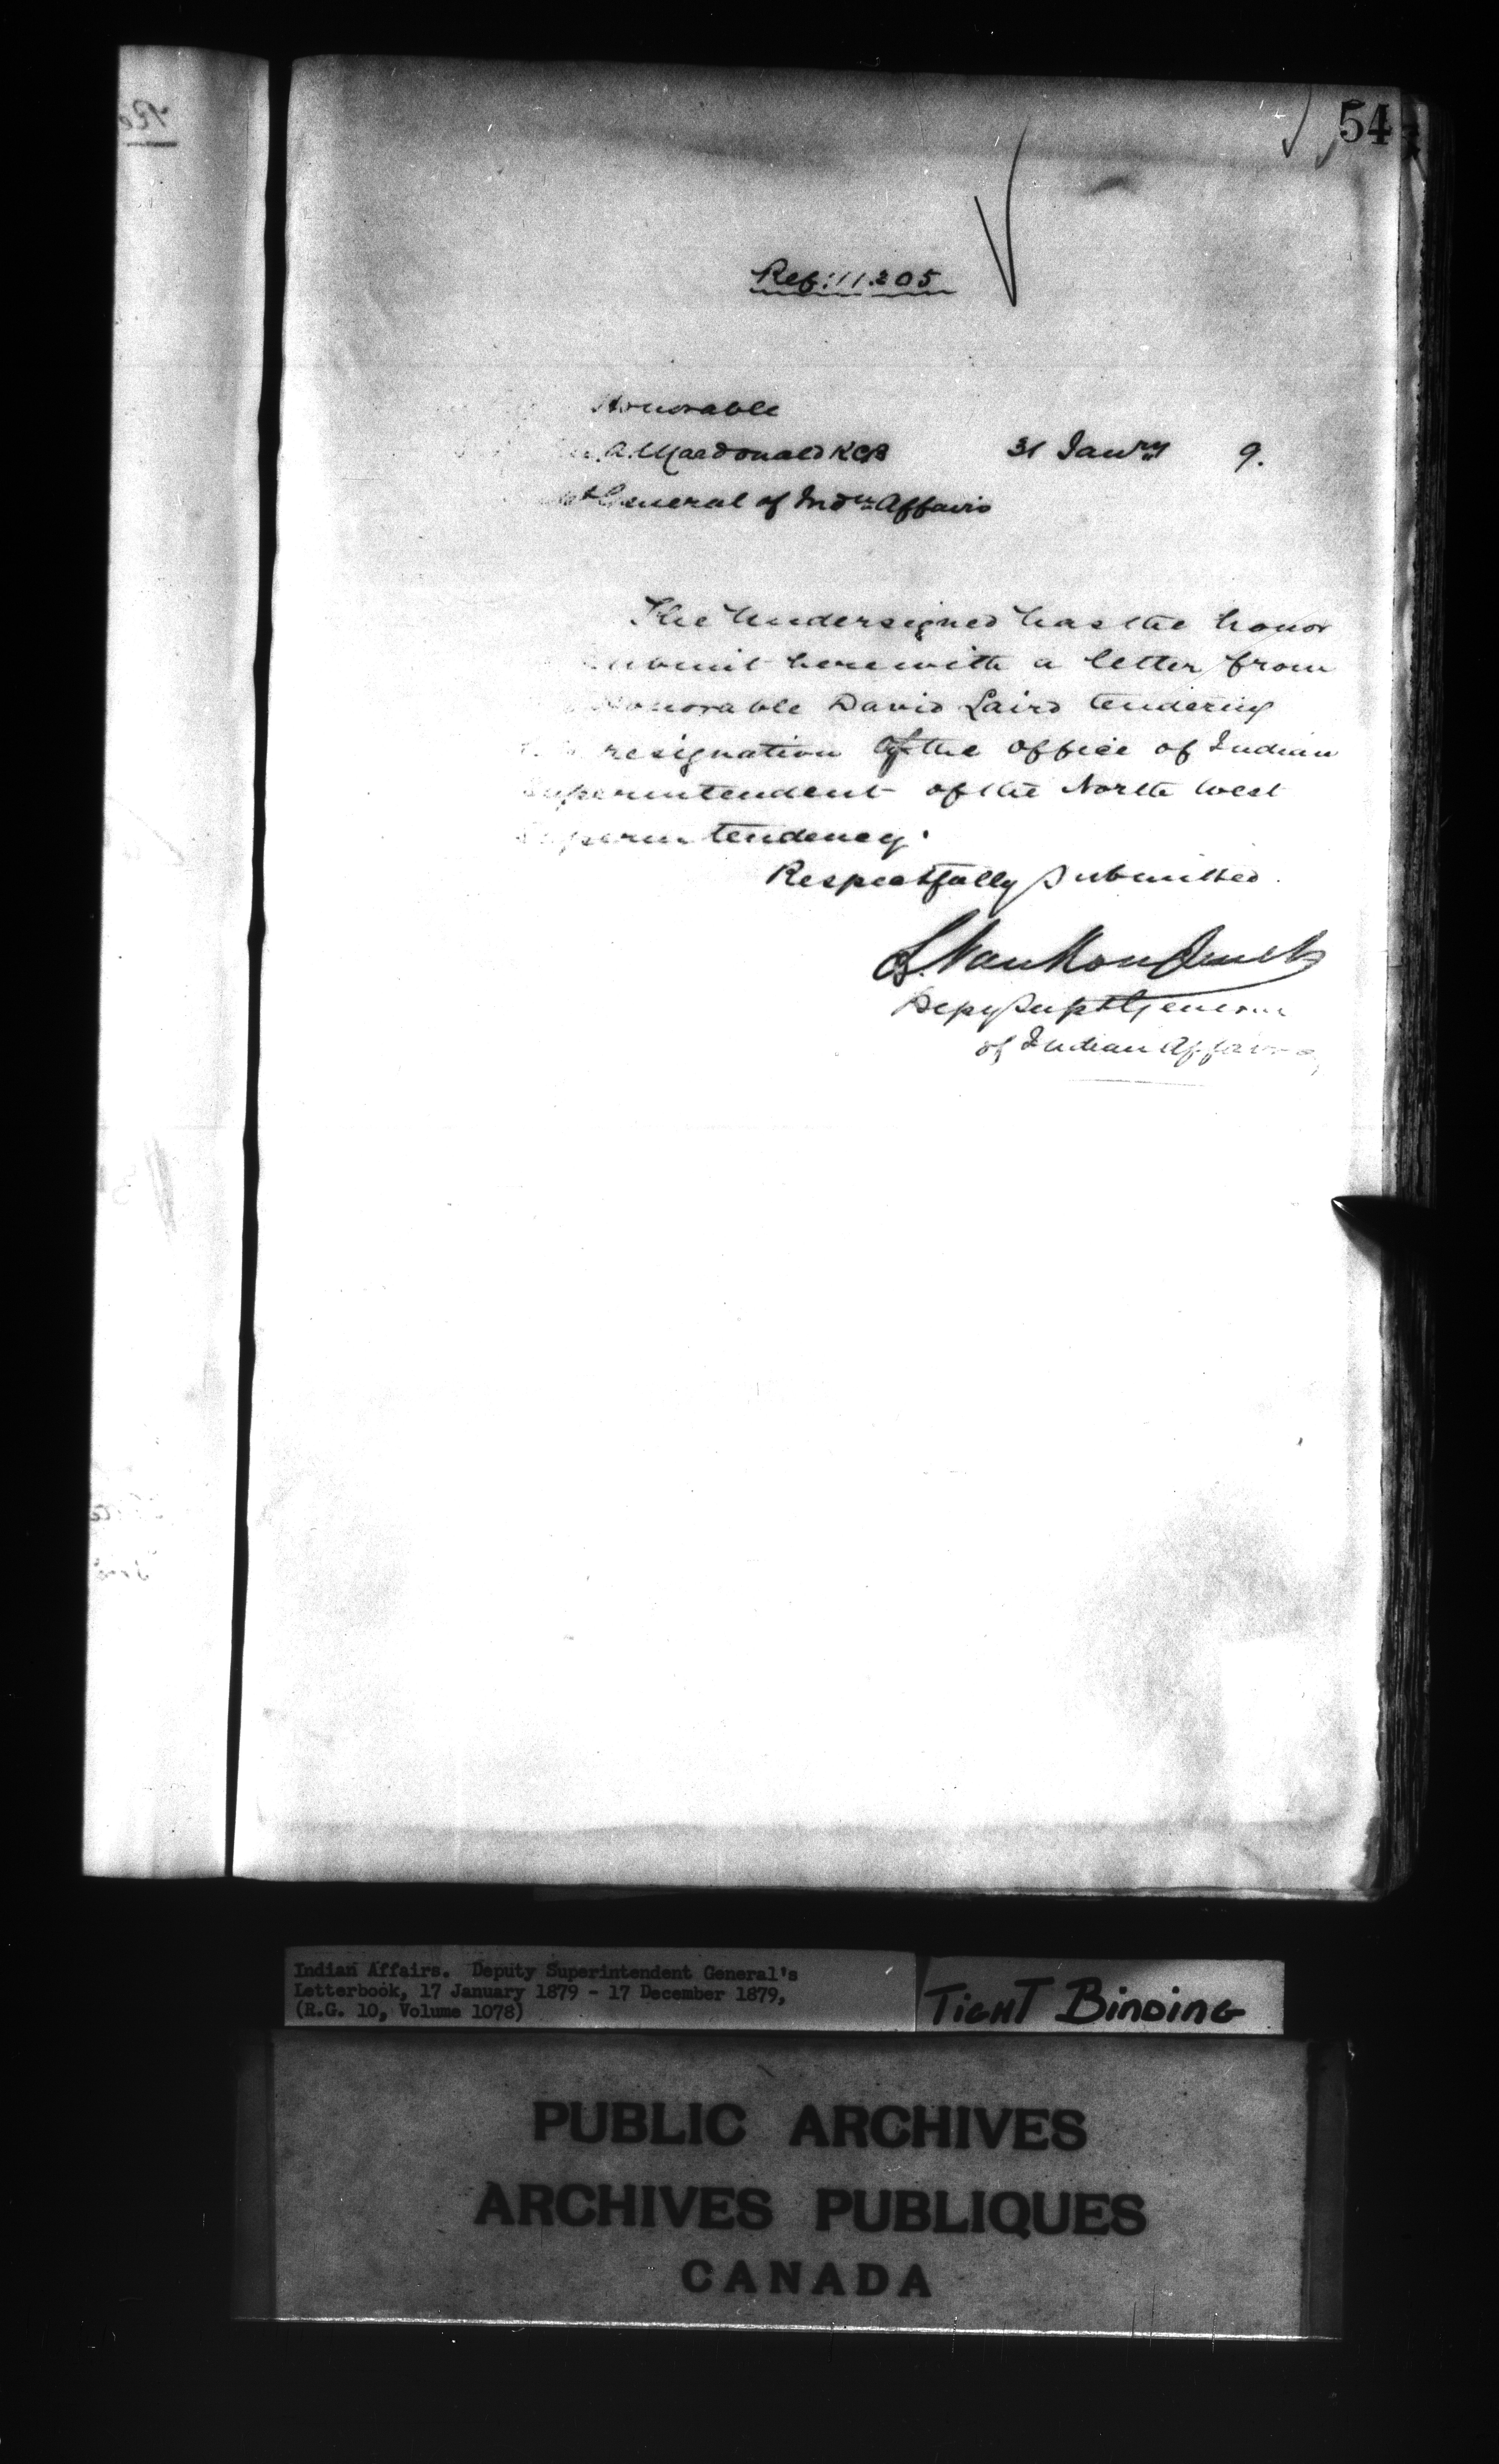 54
Ref: 11.205
Honorable
A. Macdonald KCB 31 Janry 9.
General of Indn Affairs
The Undersigned has the honor
submit herewith a letter from
Honorable David Laird tendering
resignation of the office of Indian
Superintendent of the North West
Superintendency.
Respectfully Submitted.
L. VanKoughnet
Depy Supt General
of Indian Affairs
Indian Affairs. Deputy Superintendent General's
Letterbook, 17 January 1879 - 17 December 1879,
(R.G. 10, Volume 1078)
TIGHT BINDING
PUBLIC ARCHIVES
ARCHIVES PUBLIQUES
CANADA